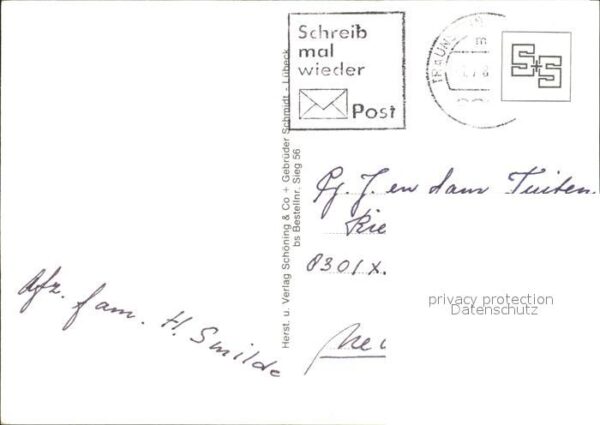 Schreib
mal
wieder
Post
TRAUN
S+S
Herst. u. Verlag Schöning & Co + Gebrüder Schmidt - Lübeck
bs Bestellnr. Sieg 56
Fam. J. en dam Tuiten.
Rie
8301 X.
Afz. fam. H. Smilde
privacy protection
Datenschutz